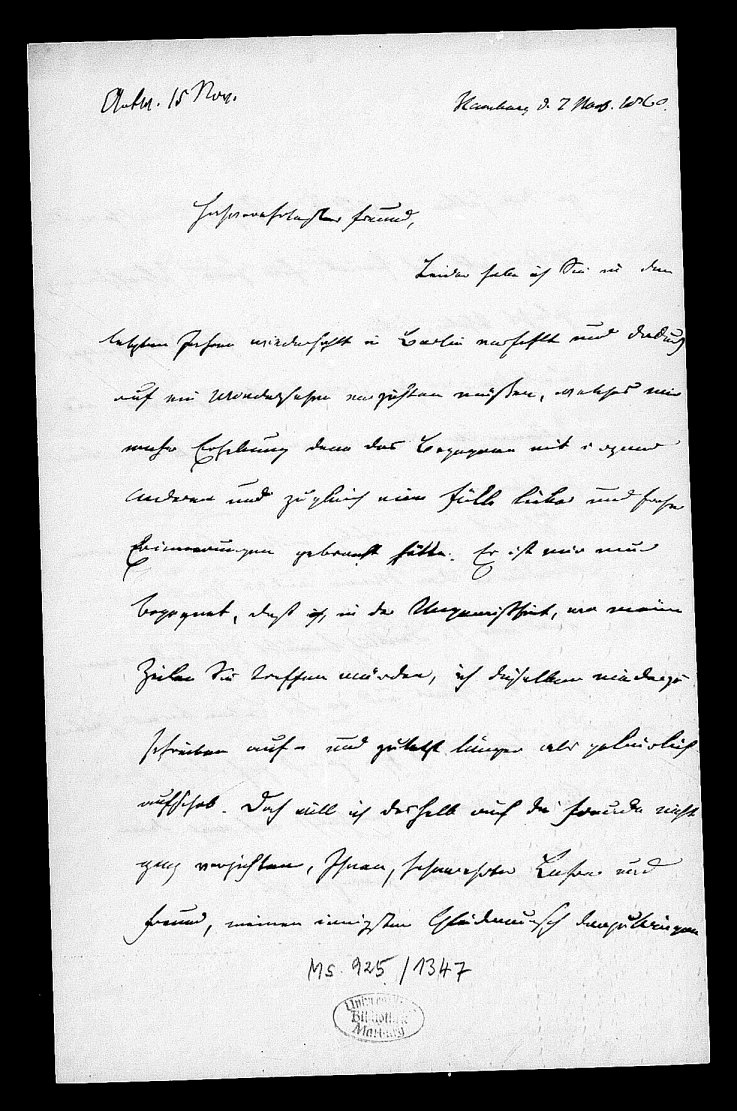 Antw. 15 Nov.
Hamburg d. 7 Nov. 1860.
Hochverehrtester Freund,
Leider habe ich Sie in den
letzten Jahren wiederholt in Berlin verfehlt und dadurch
auf ein Wiedersehen verzichten müssen, welches mir
mehr Erhebung denn das Begegnen mit
Anderen und zugleich eine Fülle lieber und froher
Erinnerungen gebracht hätte. Es ist mir nun
begegnet, daß ich, in der Ungewißheit, wo meine
Zeilen Sie treffen würden, ich dieselben niederzu-
schreiben auf- und zuletzt länger als gebührlich
aufschob. Doch will ich deshalb auf die Freude nicht
ganz verzichten, Ihnen, hochverehrter Lehrer und
Freund, meinen innigsten Glückwunsch darzubringen
Ms. 925/1347
Universitäts
Bibliothek
Marburg